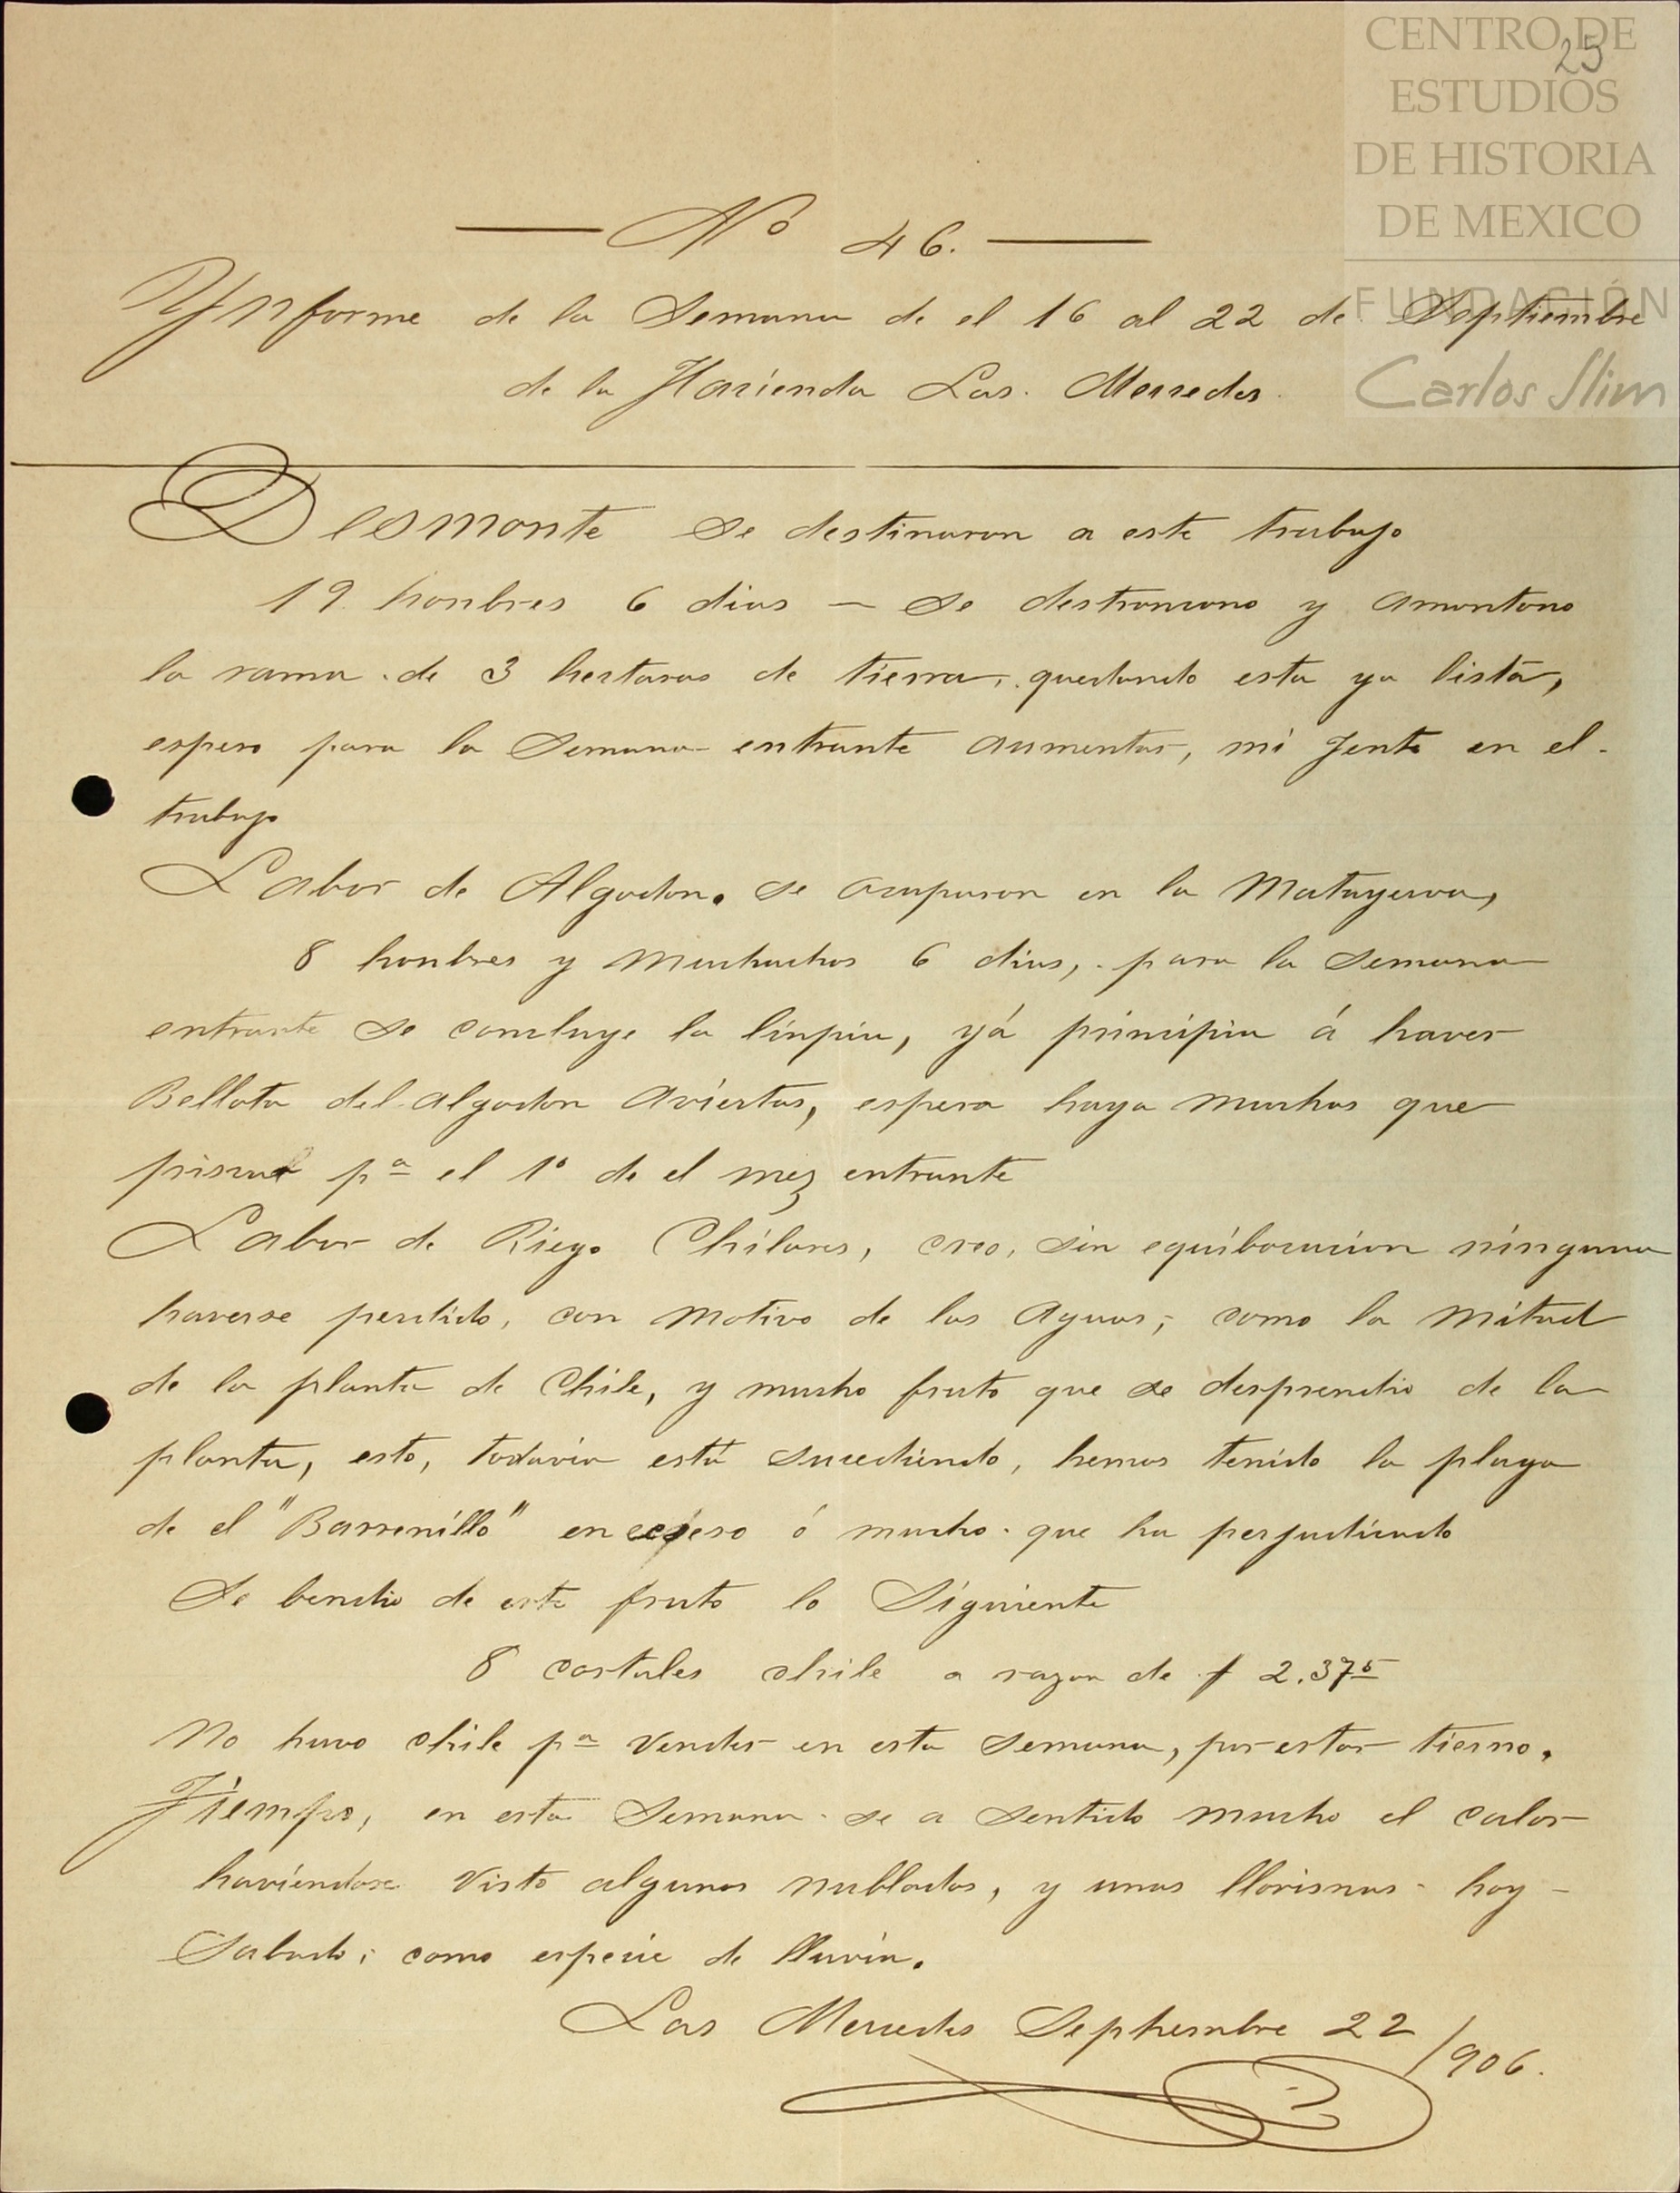 CENTRO DE
25
ESTUDIOS
DE HISTORIA
DE MEXICO
FUNDACIÓN
Carlos Slim
No 46.
Ynforme de la Semana de el 16 al 22 de Septiembre
de la Hacienda Las Mercedes.
Desmonte se destinaron a este trabajo
19 honbres 6 dias — se destroncono y amontono
la rama de 3 hectaras de tierra, quedando esta ya lista,
espero para la Semana entrante aumentar, mi jente en el
trabajo
Labor de Algodon. se ocuparon en la Matayerva,
8 honbres y muchachos 6 dias, para la semana
entrante se concluye la linpia, yá principia á haver
Bellota del algodon aviertas, espero haya muchas que
piscar pa el 1o de el mez entrante
Labor de Riego Chilares, creo, sin equibocacion ninguna
haverse perdido, con motivo de las Aguas; como la mitad
de la planta de Chile, y mucho fruto que se desprendio de la
planta, esto, todavia está sucediendo, hemos tenido la plaga
de el "Barrenillo" en eceso ó mucho que ha perjudicado
Se bendio de este fruto lo Siguiente
8 costales chile a razon de $ 2.375
No huvo chile pa vender en esta semana, por estar tierno.
Tiempo, en esta Semana se a sentido mucho el calor
haviendose visto algunos nublados, y unas llorisnas hoy
Sabado; como especie de lluvia.
Las Mercedes Septiembre 22/906.